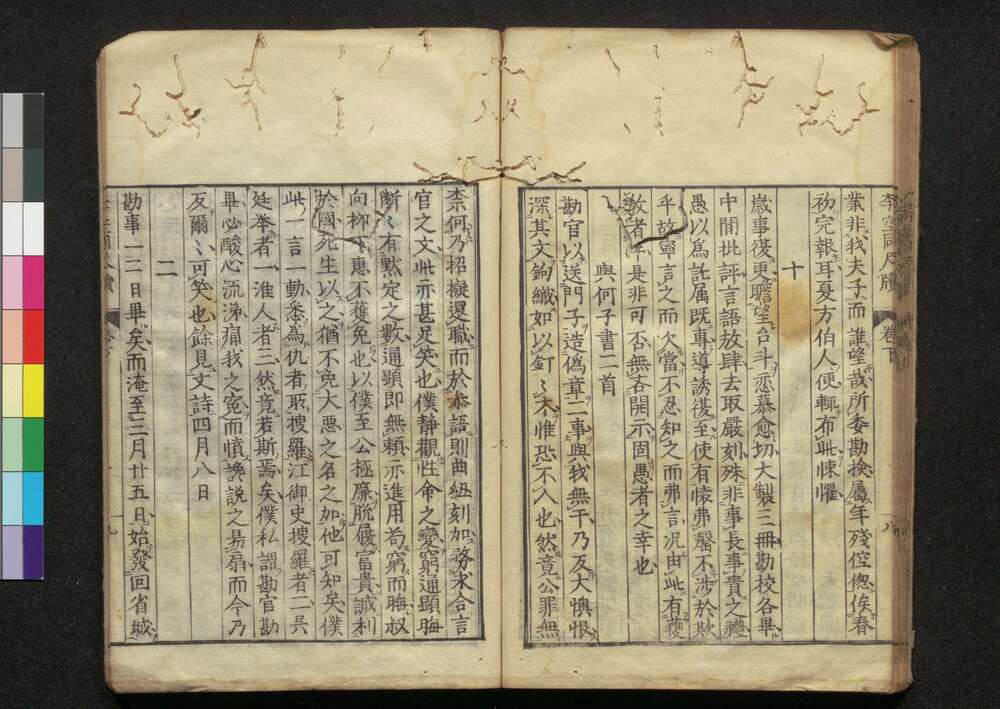 李空同尺牘 卷下 八
業非我夫子而誰望哉所委勘換屬年殘倥偬俟春
初完報耳夏方伯人便輒布此悚懼
十
歲事復更瞻望台斗亦慕愈切大製三冊勘校各畢
中間批評言語放肆去取嚴刻殊非事長事貴之禮
愚以爲託属既專導誘復至使有懷弗罄不涉於欺
乎故寧言之而欠當不忍知之而弗言况由此有獲
教者乎是非可否無吝開示固愚者之幸也
與何子書二首
勘官以送門子造偽章二事與我無干乃反大懊恨
深其文鉤織如以釘釘木惟恐不入也然竟公罪無
柰何乃招擬還職而於叅語則曲紐刻加務求合言
官之文此亦甚足笑也僕静觀性命之變窮通顯晦
斷斷有黙定之數通顕即無頼亦進用苟窮而晦叔
向柳惠不獲免也以僕至公極廉脱屣富貴誠利
於國死生以之猶不免大惡之名之加他可知矣僕
此一言一動悉為仇者取搜羅江御史搜羅者二呉
廷举者一淮人者三然竟若斯焉矣僕私謂勘官勘
畢必酸心流涕痛我之寃而憤讒說之易扇而今乃
反爾爾可笑也餘見文詩四月八日
二
勘事一二日畢矣而淹至三月廿五日始發回省城
九